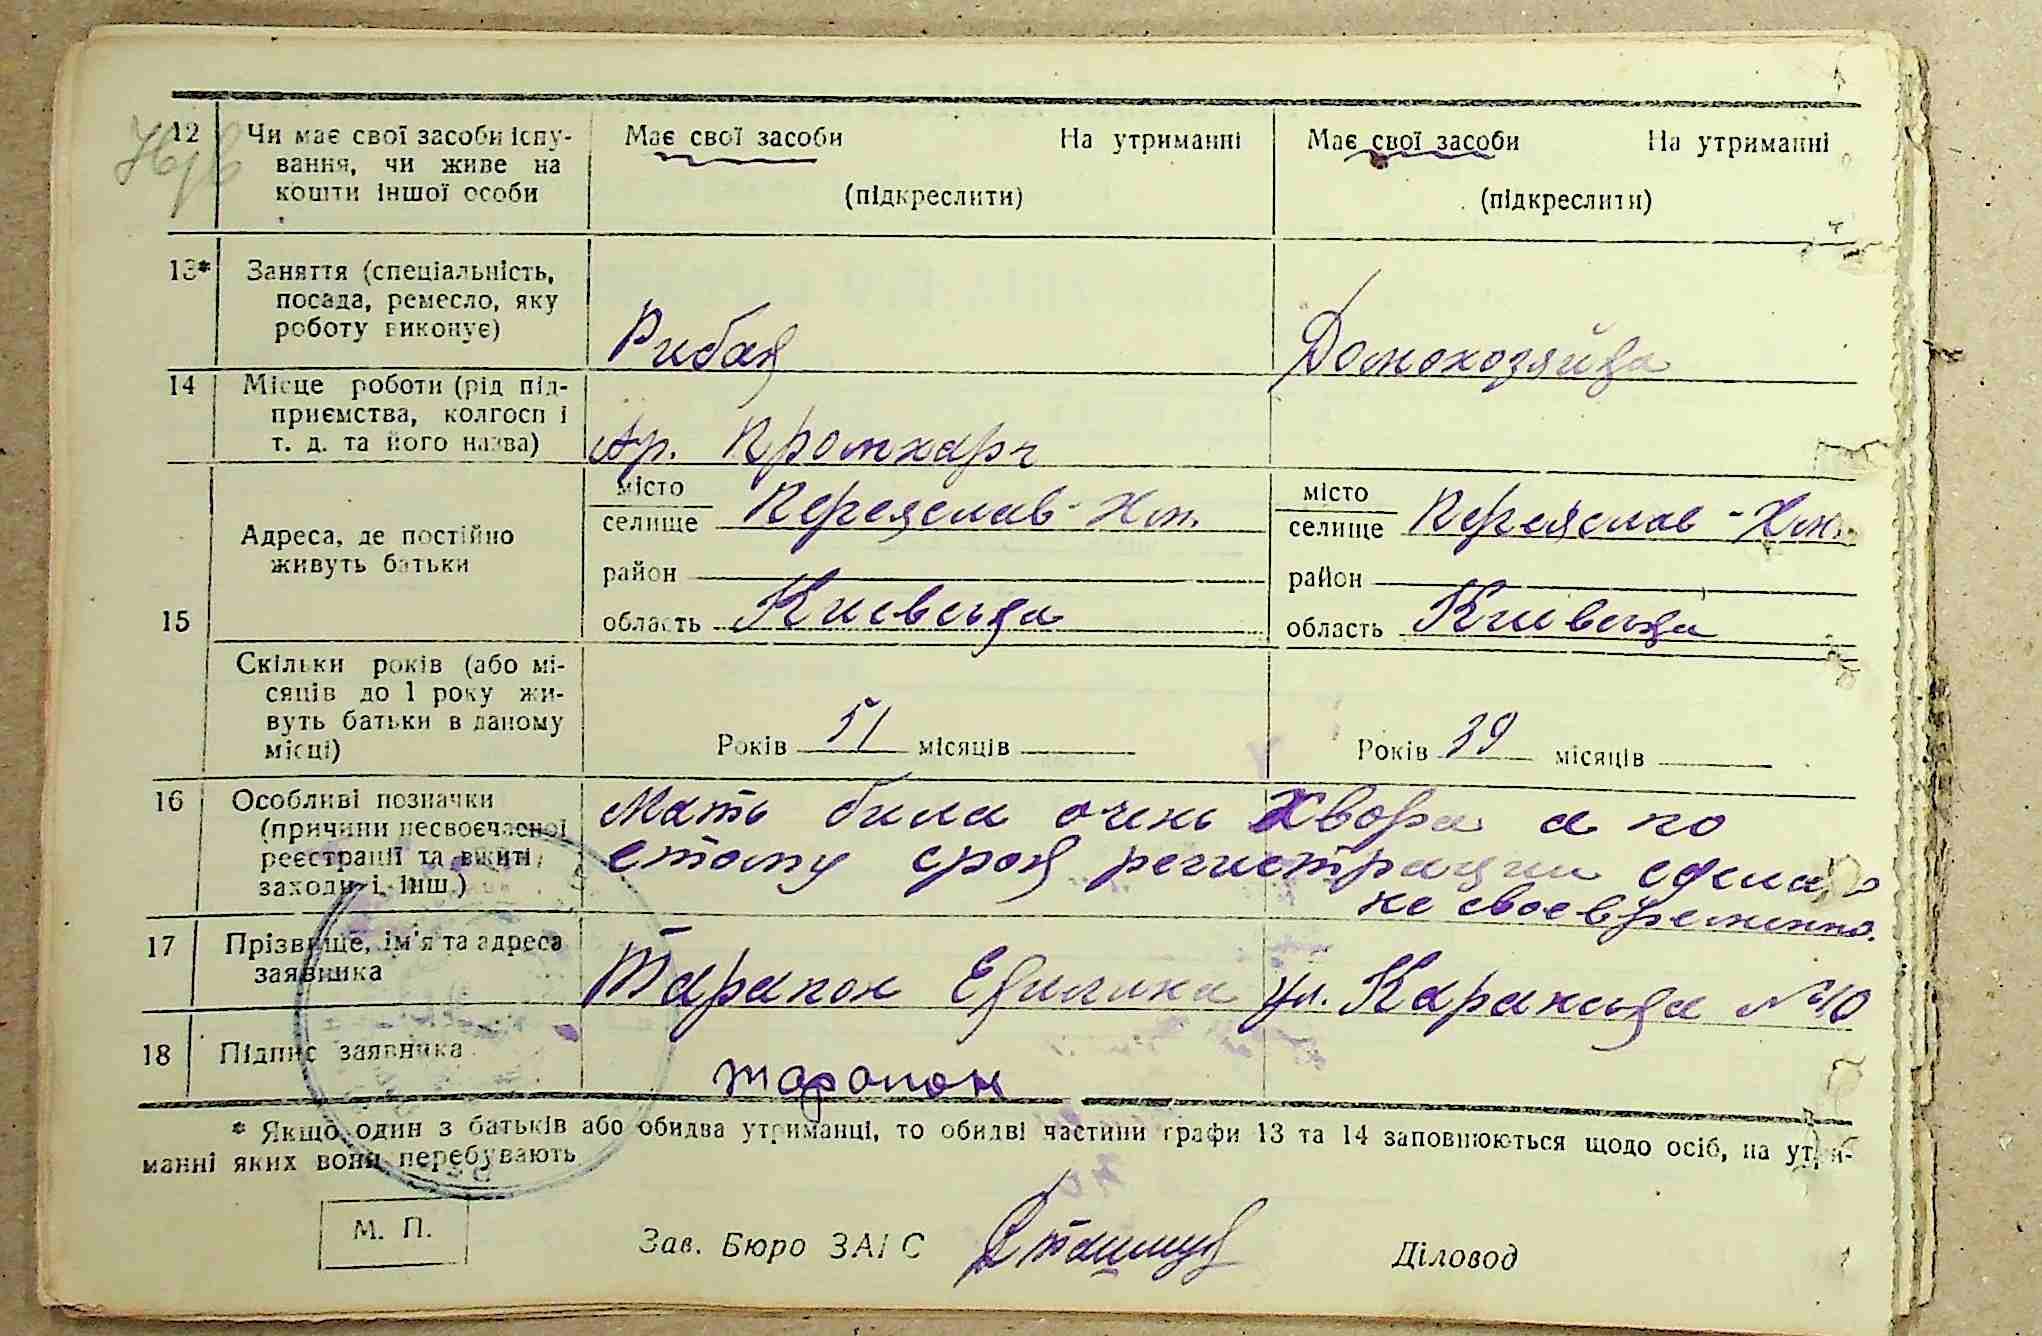 12 Чи має свої засоби існу- Має свої засоби На утриманні Має свої засоби На утриманні
вання, чи живе на
кошти іншої особи (підкреслити) (підкреслити)
13* Заняття (спеціальність,
посада, ремесло, яку
роботу виконує) Рибак Домохозяйка
14 Місце роботи (рід під-
приємства, колгосп і
т. д. та його назва) Ар. Промхарч
15 Адреса, де постійно
живуть батьки
місто
селище Переяслав-Хм.
район
область Киевська
місто
селище Переяслав-Хм.
район
область Київська
Скільки років (або мі-
сяців до 1 року жи-
вуть батьки в даному
місці) Років 51 місяців Років 39 місяців
16 Особливі позначки
(причини несвоєчасної
реєстрації та вжиті
заходи і інш.)
Мать била очень хвора а по
етому срок регистрации сделан
не своевременно.
17 Прізвище, ім'я та адреса
заявника Тарапон ул. №10
18 Підпис заявника тарапон
* Якщо один з батьків або обидва утриманці, то обидві частини графи 13 та 14 заповнюються щодо осіб, на утри-
манні яких вони перебувають
М. П. Зав. Бюро ЗАГС Діловод